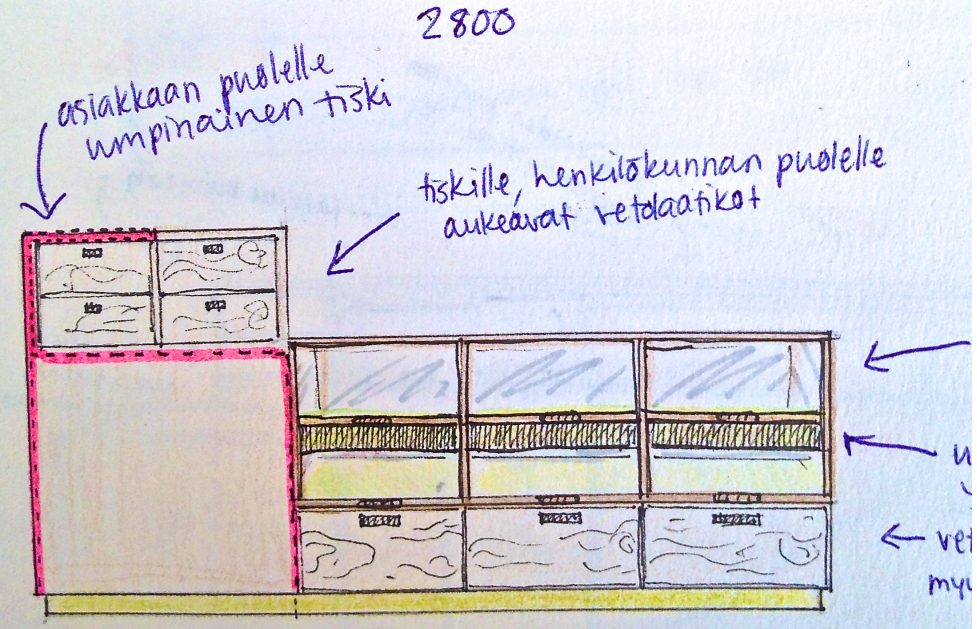 2800
asiakkaan puolelle
umpinainen tiski
tiskille, henkilökunnan puolelle
aukeavat vetolaatikot